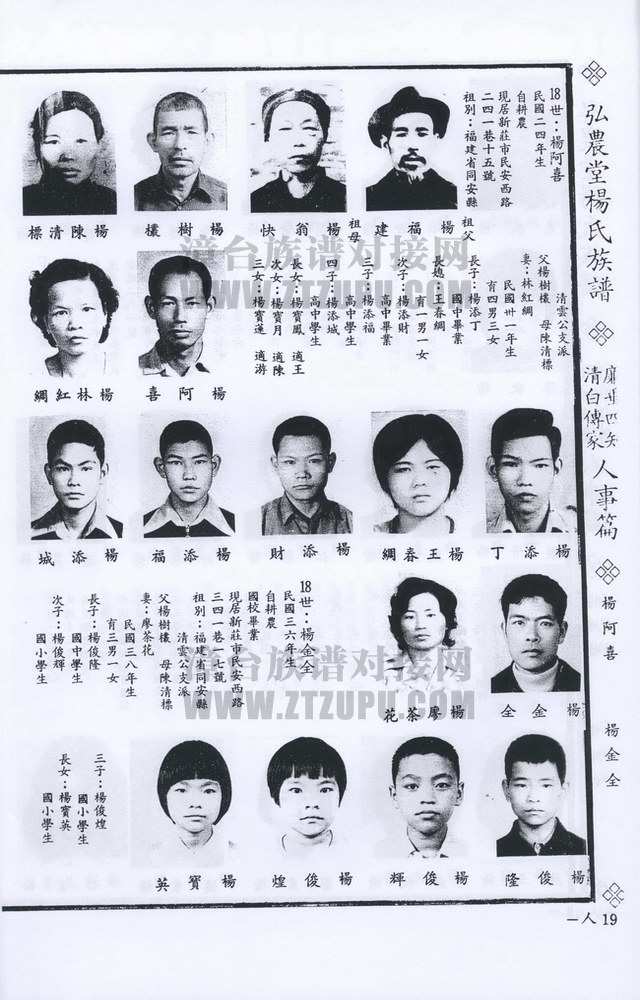 弘農堂楊氏族譜
清白傳家
人事篇
楊阿喜
楊金全
18世：楊阿喜
民國二四年生
自耕農
現居新莊市民安西路
二四一巷十五號
祖別：福建省同安縣
祖父
楊福建
祖母
楊翁快
楊樹欉
楊陳清標
清雲公支派
父楊樹欉 母陳清標
妻：林紅綢
民國卅一年生
育四男三女
長子：楊添丁
國中畢業
長媳：王春綢
育一男一女
次子：楊添財
高中畢業
三子：楊添福
高中學生
四子：楊添城
高中學生
長女：楊寶鳳 適王
次女：楊寶月 適陳
三女：楊寶蓮 適游
楊阿喜
楊林紅綢
楊添丁
楊王春綢
楊添財
楊添福
楊添城
楊金全
楊廖茶花
18世：楊金全
民國三六年生
自耕農
國校畢業
現居新莊市民安西路
三四一巷十七號
祖別：福建省同安縣
清雲公支派
父楊樹欉 母陳清標
妻：廖茶花
民國三八年生
育三男一女
長子：楊俊隆
國中學生
次子：楊俊輝
國小學生
三子：楊俊煌
國小學生
長女：楊寶英
國小學生
楊俊隆
楊俊輝
楊俊煌
楊寶英
一人19
漳台族谱对接网
WWW.ZTZUPU.COM
漳台族谱对接网
WWW.ZTZUPU.COM